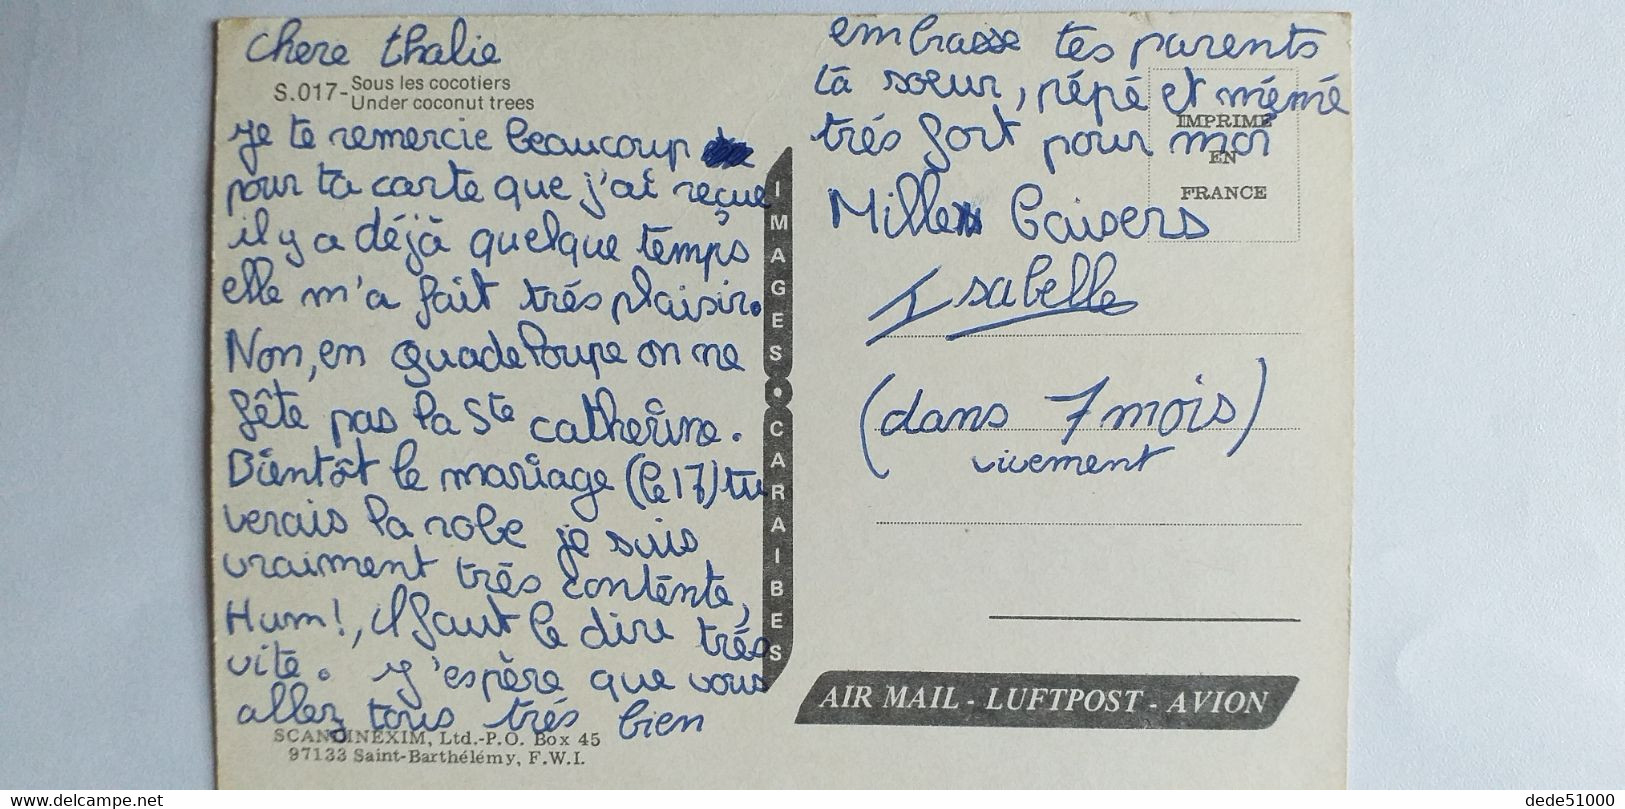 chere thalie
S.017- Sous les cocotiers
Under coconut trees
je te remercie beaucoup
pour ta carte que j'ai reçue
il y a déjà quelque temps
elle m'a fait trés plaisir.
Non, en guadeloupe on ne
fête pas la Ste catherine.
Bientôt le mariage (le 17) tu
verais la robe je suis
vraiment trés contente,
Hum!, il faut le dire trés
vite. J'espère que vous
allez tous trés bien
SCANDINEXIM, Ltd.-P.O. Box 45
97133 Saint-Barthélémy, F.W.I.
IMAGES • CARAIBES
embrasse tes parents
ta soeur, pépé et mémé
trés fort pour moi
IMPRIME
EN
FRANCE
Mille baisers
Isabelle
(dans 7 mois)
vivement
AIR MAIL - LUFTPOST - AVION
dede51000